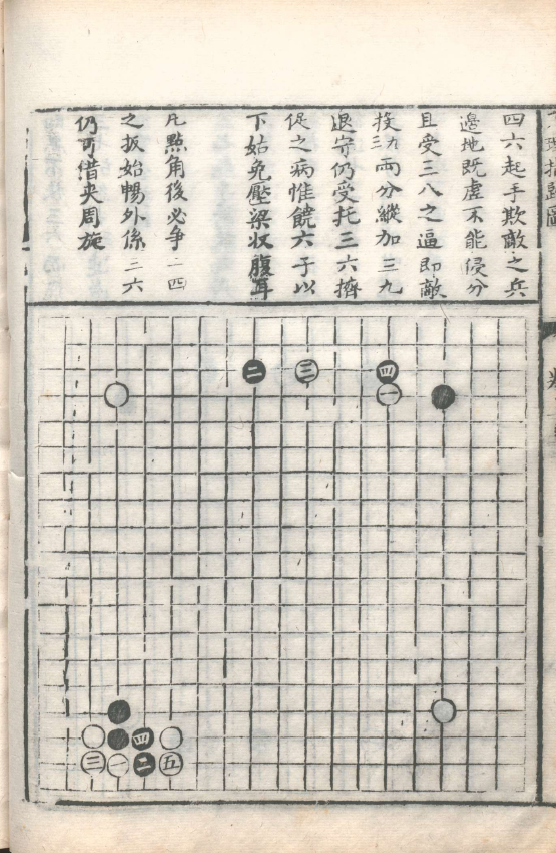 四六起手欺敵之兵
邊地既虛不能侵分
且受三八之逼即敵
投三九兩分縱加三九
退守仍受托三六擠
促之病惟饒六子以
下姑免壓梁收腹耳
凡點角後必爭二四
之扳始暢外係三六
仍可借夾周施
二 三 四
一
四
三 一 二 五